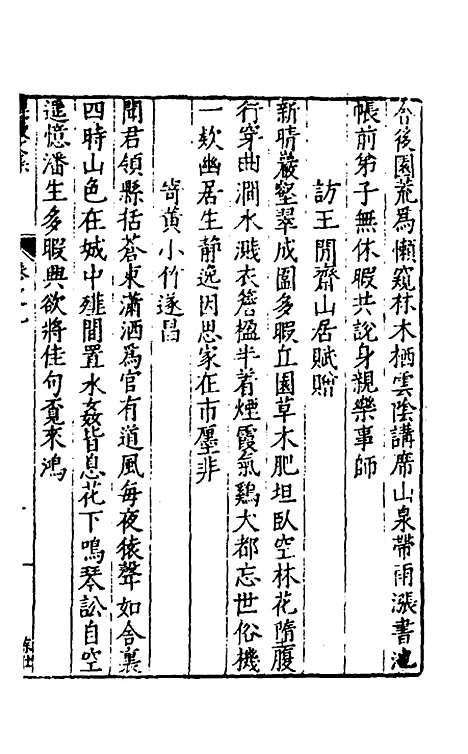 合後園荒為懶窺林木栖雲陰講席山泉帶雨漲書池
帳前弟子無休暇共說身親樂事師
訪王閒齋山居賦贈
新晴巖壑翠成圍多暇丘園草木肥坦臥空林花墮腹
行穿曲澗水濺衣簷楹半着煙霞氣鷄犬都忘世俗機
一欵幽居生靜逸因思家在市廛非
寄黃小竹遂昌
聞君領縣括蒼東瀟洒為官有道風每夜猿聲如舍裏
四時山色在城中殫間置水姦皆息花下鳴琴訟自空
遥憶潘生多暇興欲將佳句覔來鴻